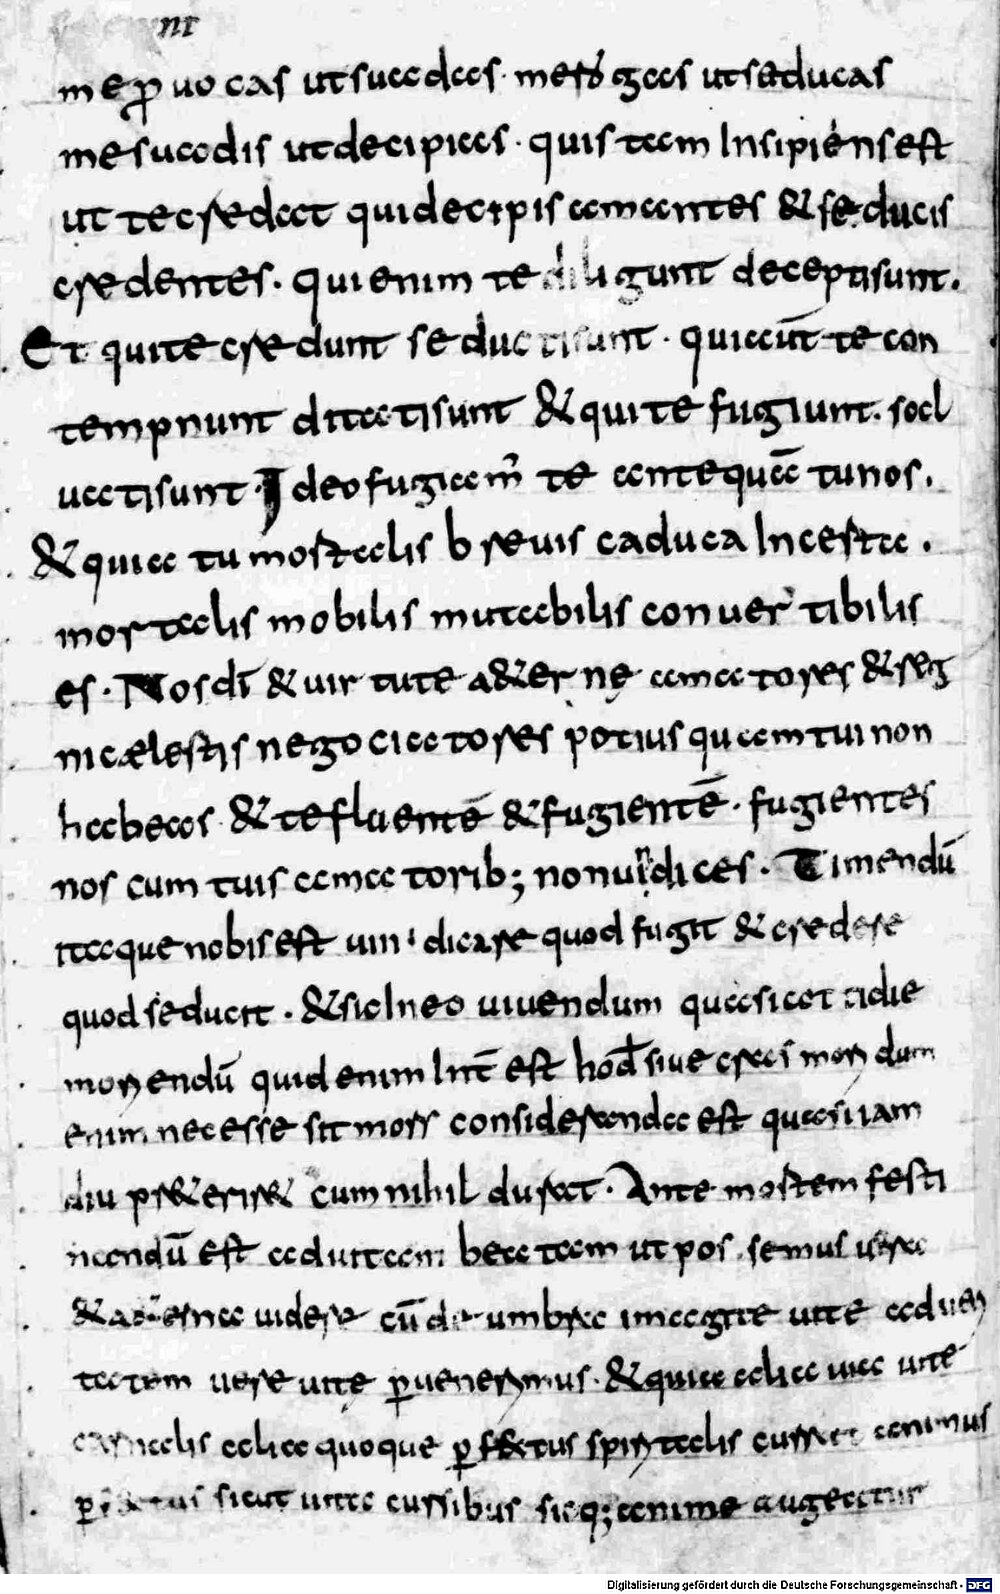 nt
me ꝓuocas ut suadas me rogas ut seducas
me suadis ut decipias · quis tam Insipiens est
ut te credat qui decipis amantes & seducis
credentes · qui enim te diligunt decepti sunt ·
Et qui te credunt seducti sunt · qui aūt te con
tempnunt ditati sunt & qui te fugiunt · sal
uati sunt · Ideo fugiam̃ te antequā tu nos ·
& quia tu mortalis breuis caduca Incesta ·
mortalis mobilis mutabilis conuertibilis
es · Nos dī & uirtute a&ernę amatores & reg
ni cælestis negociatores potius quam tui non
habeas & te fluentē & fugientē · fugientes
nos cum tuis amatorib; non uindices · Timendū
itaque nobis est uitę dicare quod fugit & credere
quod seducit · & sic In eo uiuendum quasi cottidie
moriendū quid enim Int̄ est hodie siue cras moriendum
enim necesse sit mors consideranda est quasi iam
diu pr&erir& cum nihil durat · Ante mortem festi
nandū est ad uitam beatam ut possemus uera
& aeterna uidere cū de umbra imagine uite ad ueri
tatem uere uitę ꝑuenerimus · & quia alia uia uite
carnalis alia quoque ꝑfectus spiritalis cursus animus
sicut uita cursibus sicq; anime augeatur